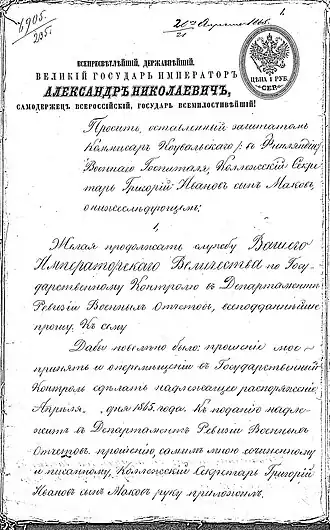 1905.
20го Апреля 1865.
ЦѢНА 1 РУБ.
СЕР.
ВСЕПРЕСВѢТЛѢЙШІЙ, ДЕРЖАВНѢЙШІЙ,
ВЕЛИКІЙ ГОСУДАРЬ ИМПЕРАТОРЪ
АЛЕКСАНДРЪ НИКОЛАЕВИЧЪ,
САМОДЕРЖЕЦЪ ВСЕРОССІЙСКІЙ, ГОСУДАРЬ ВСЕМИЛОСТИВѢЙШІЙ!
Проситъ, оставленный за штатомъ
Коммисаръ въ Финляндіи
Военнаго Госпиталя, Коллежскій Секре
тарь Григорій Ивановъ сынъ Маковъ,
о нижеслѣдующемъ:
1,
Желая продолжать службу Вашего
Императорскаго Величества по Госу-
дарственному Контролю въ Департаментѣ
Ревизіи Военныхъ Отчетовъ, всеподданнѣйше
прошу. Къ сему
Дабы повелѣно было: прошеніе мое
принять и о перемѣщеніи въ Государственный
Контроль сдѣлать надлежащее распоряженіе.
Апрѣля . дня 1865 года. Къ поданію надле-
житъ въ Департаментъ Ревизіи Военныхъ
Отчетовъ. прошенію, самимъ мною сочиненному
и писанному, Коллежскій Секретарь Григорій
Ивановъ сынъ Маковъ руку приложилъ.